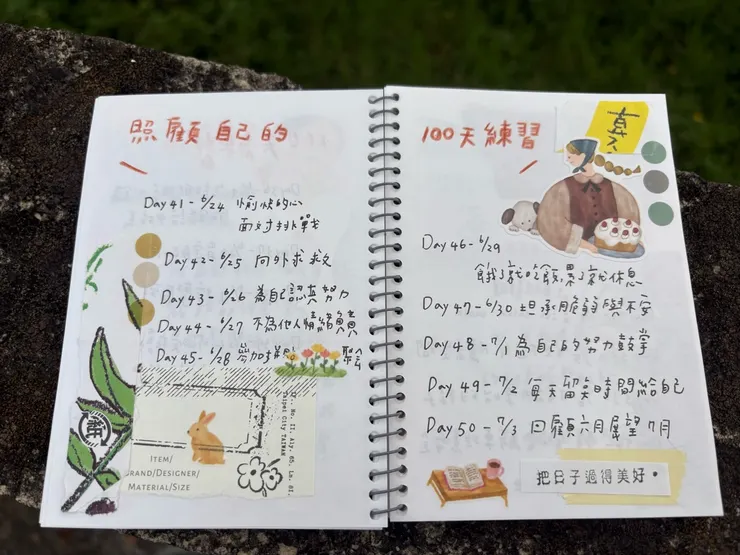 照顧自己的
Day 41 - 6/24 愉快的心
面對挑戰
Day 42 - 6/25 向外求救
Day 43 - 6/26 為自己認真努力
Day 44 - 6/27 不為他人情緒負責
Day 45 - 6/28 參加
術
ITEM/
BRAND/DESIGNER/
MATERIAL/SIZE
Taipei City TAIWAN
100天練習
Day 46 - 6/29
餓了就吃飯,累了就休息
Day 47 - 6/30 坦承脆弱與不安
Day 48 - 7/1 為自己的努力鼓掌
Day 49 - 7/2 每天留點時間給自己
Day 50 - 7/3 回顧六月展望7月
把日子過得美好。